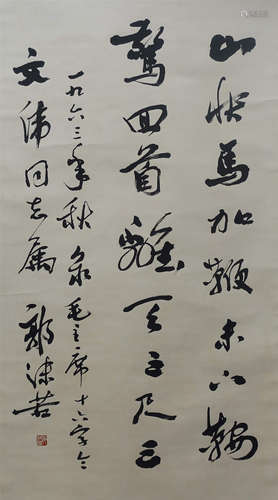 山快馬加鞭未下鞍
驚回首離天三尺三
一九六三年秋录毛主席十六字令
文偉同志属 郭沫若